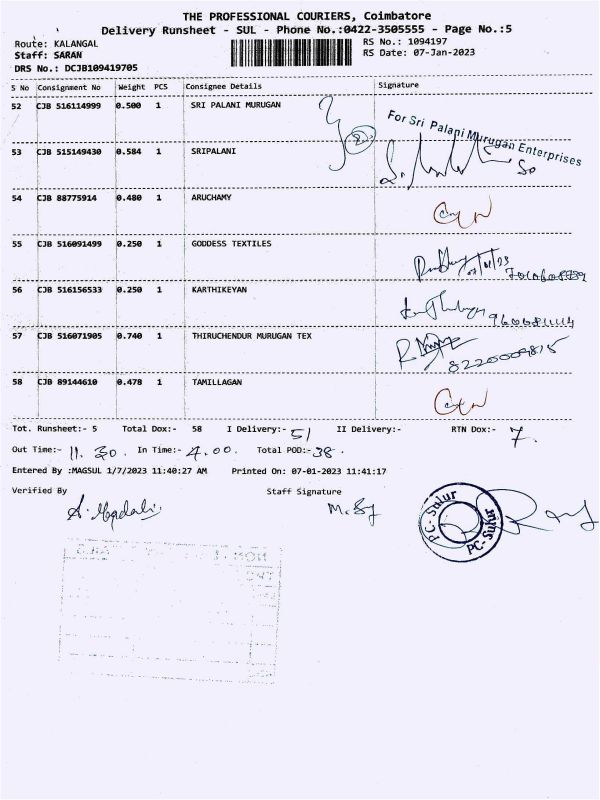 THE PROFESSIONAL COURIERS, Coimbatore
Delivery Runsheet - SUL - Phone No.:0422-3505555 - Page No.:5
Route: KALANGAL
RS No.: 1094197
Staff: SARAN
RS Date: 07-Jan-2023
DRS No.: DCJB109419705
S No Consignment No Weight PCS Consignee Details Signature
52 CJB 516114999 0.500 1 SRI PALANI MURUGAN
For Sri Palani Murugan Enterprises
53 CJB 515149430 0.584 1 SRIPALANI
54 CJB 88775914 0.480 1 ARUCHAMY
55 CJB 516091499 0.250 1 GODDESS TEXTILES
56 CJB 516156533 0.250 1 KARTHIKEYAN
57 CJB 516071905 0.740 1 THIRUCHENDUR MURUGAN TEX
8220009815
58 CJB 89144610 0.478 1 TAMILLAGAN
Tot. Runsheet:- 5 Total Dox:- 58 I Delivery:- 51 II Delivery:- RTN Dox:- 7.
Out Time:- 11.30. In Time:- 4.00. Total POD:- 38.
Entered By :MAGSUL 1/7/2023 11:40:27 AM Printed On: 07-01-2023 11:41:17
Verified By Staff Signature
PC- Sulur
PC- Sulur